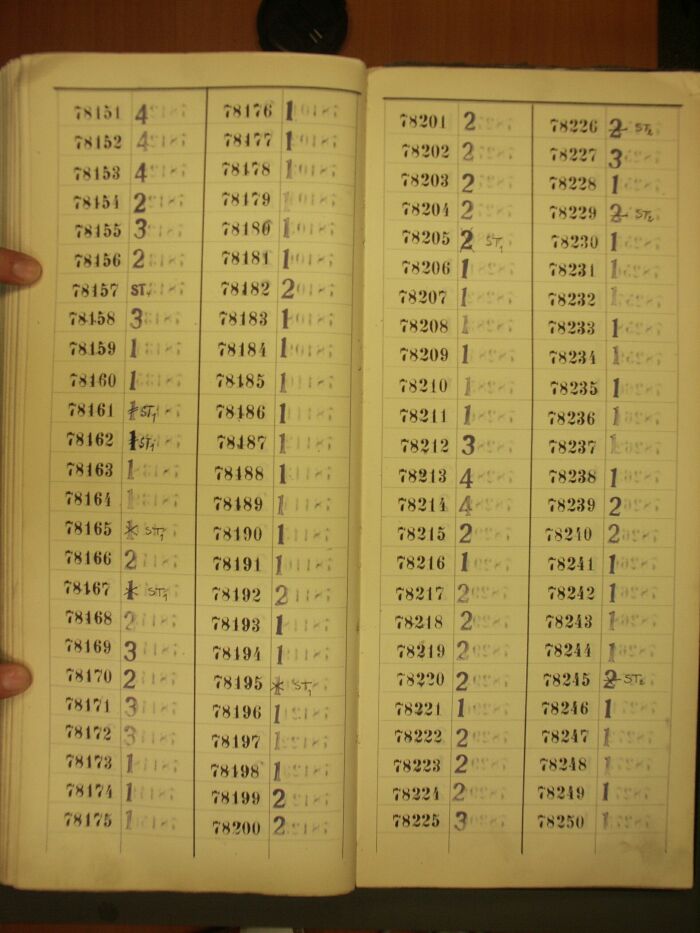 78151 4
78152 4
78153 4
78154 2
78155 3
78156 2
78157 ST.
78158 3
78159 1
78160 1
78161 1 ST1
78162 1 ST1
78163 1
78164 1
78165 1 ST1
78166 2
78167 1 ST1
78168 2
78169 3
78170 2
78171 3
78172 3
78173 1
78174 1
78175 1
78176 1
78177 1
78178 1
78179 1
78180 1
78181 1
78182 2
78183 1
78184 1
78185 1
78186 1
78187 1
78188 1
78189 1
78190 1
78191 1
78192 2
78193 1
78194 1
78195 1 ST1
78196 1
78197 1
78198 1
78199 2
78200 2
78201 2
78202 2
78203 2
78204 2
78205 2 ST1
78206 1
78207 1
78208 1
78209 1
78210 1
78211 1
78212 3
78213 4
78214 4
78215 2
78216 1
78217 2
78218 2
78219 2
78220 2
78221 1
78222 2
78223 2
78224 2
78225 3
78226 2 ST2
78227 3
78228 1
78229 2 ST2
78230 1
78231 1
78232 1
78233 1
78234 1
78235 1
78236 1
78237 1
78238 1
78239 2
78240 2
78241 1
78242 1
78243 1
78244 1
78245 2 ST2
78246 1
78247 1
78248 1
78249 1
78250 1